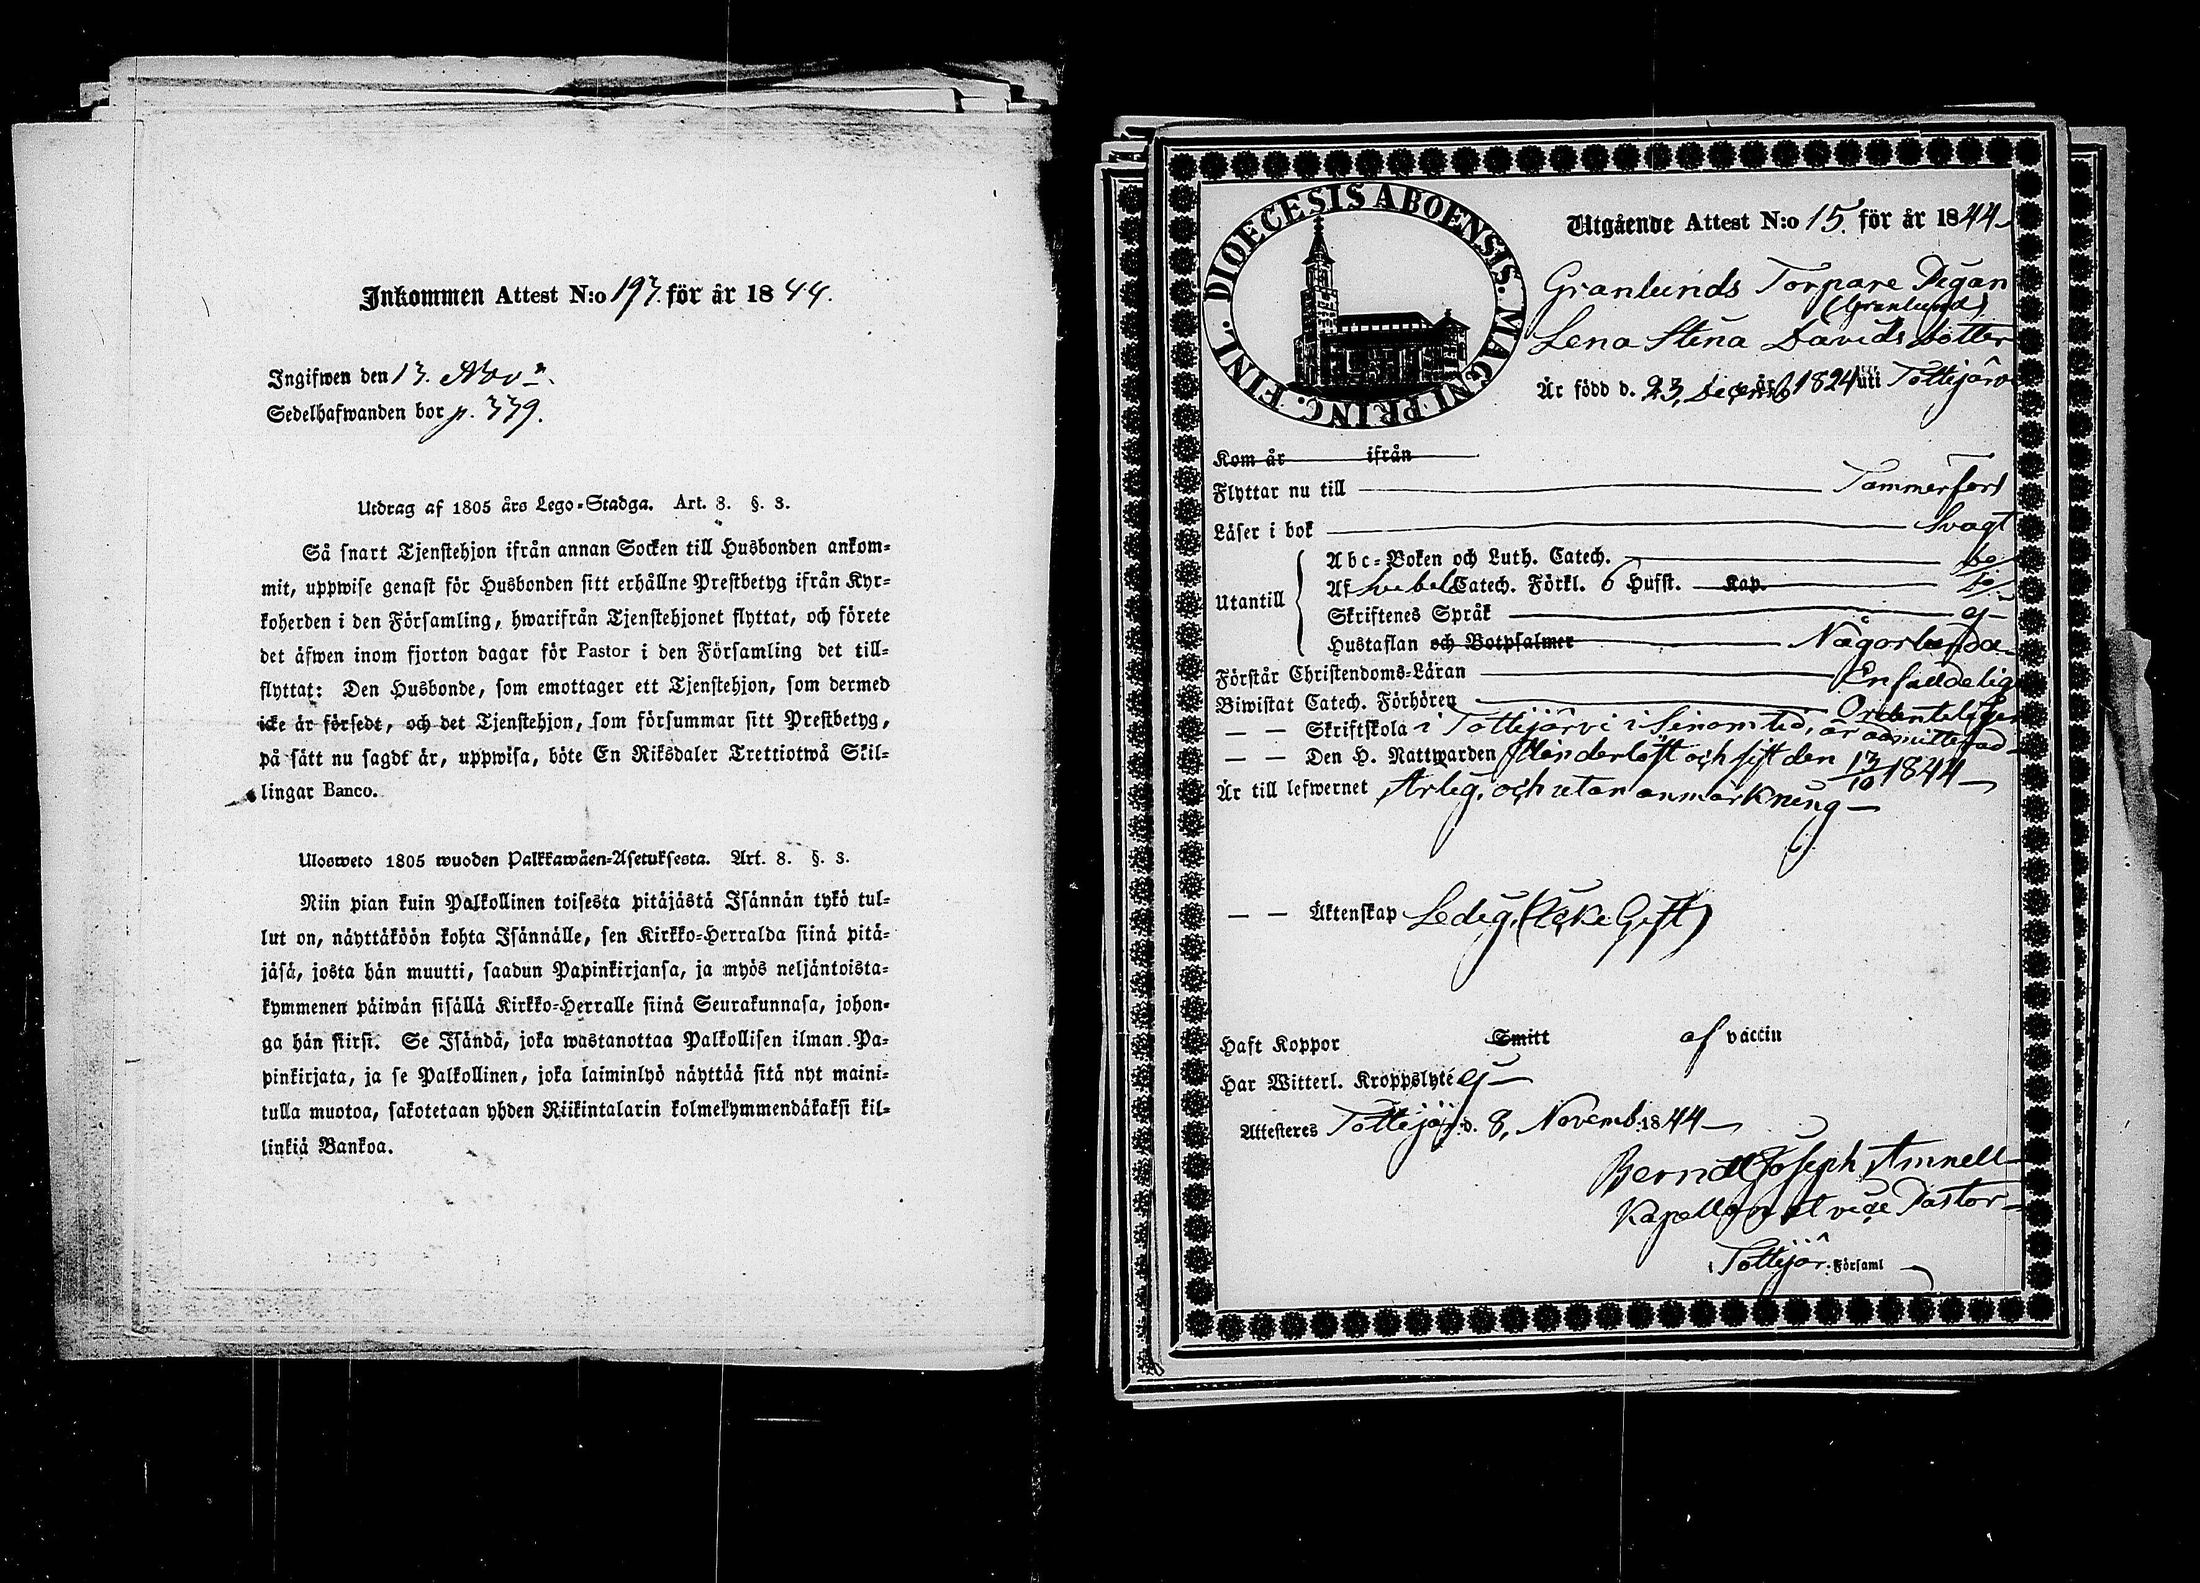 Inkommen Attest N:o 193. för år 1844.
Ingifwen den 13. Nov.
Sedelhafwanden bor p. 339.
Utdrag af 1805 års Lego-Stadga. Art. 8. §. 3.
Så snart Tjenstehjon ifrån annan Socken till Husbonden ankom-
mit, uppwise genast för Husbonden sitt erhållne Prestbetyg ifrån Kyr-
koherden i den Församling, hwarifrån Tjenstehjonet flyttat, och förete
det äfwen inom fjorton dagar för Pastor i den Församling det till-
flyttat: Den Husbonde, som emottager ett Tjenstehjon, som dermed
icke är försedt, och det Tjenstehjon, som försummar sitt Prestbetyg,
på sätt nu sagdt är, uppwisa, böte En Riksdaler Trettiotwå Skil-
lingar Banco.
Ulosweto 1805 wuoden Palkkawäen-Asetuksesta. Art. 8. §. 3.
Niin pian kuin Palkollinen toisesta pitäjästä Isännän tykö tul-
lut on, näyttäköön kohta Isännälle, sen Kirkko-Herralda siinä pitä-
jäsä, josta hän muutti, saadun Papinkirjansa, ja myös neljäntoista-
kymmenen päiwän sisällä Kirkko-Herralle siinä Seurakunnasa, johon-
ga hän siirsi. Se Isändä, joka wastanottaa Palkollisen ilman Pa-
pinkirjata, ja se Palkollinen, joka laiminlyö näyttää sitä nyt maini-
tulla muotoa, sakotetaan yhden Riikintalarin kolmekymmendäkaksi kil-
linkiä Bankoa.
DIOECESIS ABOENSIS. MAGNI PRINC. FINL.
Utgående Attest N:o 15. för år 1844
Granlunds Torpare Pigan
(Granlund)
Lena Stina Davids dotter
Är född d. 23, Decemb 1824 uti Tottijärvi
Kom år ifrån
Flyttar nu till Tammerfors
Läser i bok Svagt
Utantill
Abc-Boken och Luth. Catech. be
Af Svebel. Catech. Förkl. 6 Hufst. Kap.
Skriftenes Språk ej
Hustaflan och Botpsalmer Någorlunda
Förstår Christendoms-Läran Enfaldelig
Biwistat Catech. Förhören Ordenteligen
— — Skriftskola i Tottijärvi i Sinom tid, är admitterad
— — Den H. Nattwarden Oklanderlöst och sist den 13/10 1844
Är till lefwernet Ärlig, och utan anmärkning
— — Äktenskap Ledig, (Icke Gift)
Haft Koppor Smitt af vaccin
Har Witterl. Kroppslyte ej
Attesteres Tottijär. d. 8, Novemb. 1844
Berndt Joseph Amnell
Kapellan et vice Pastor
i Tottijär. Församl